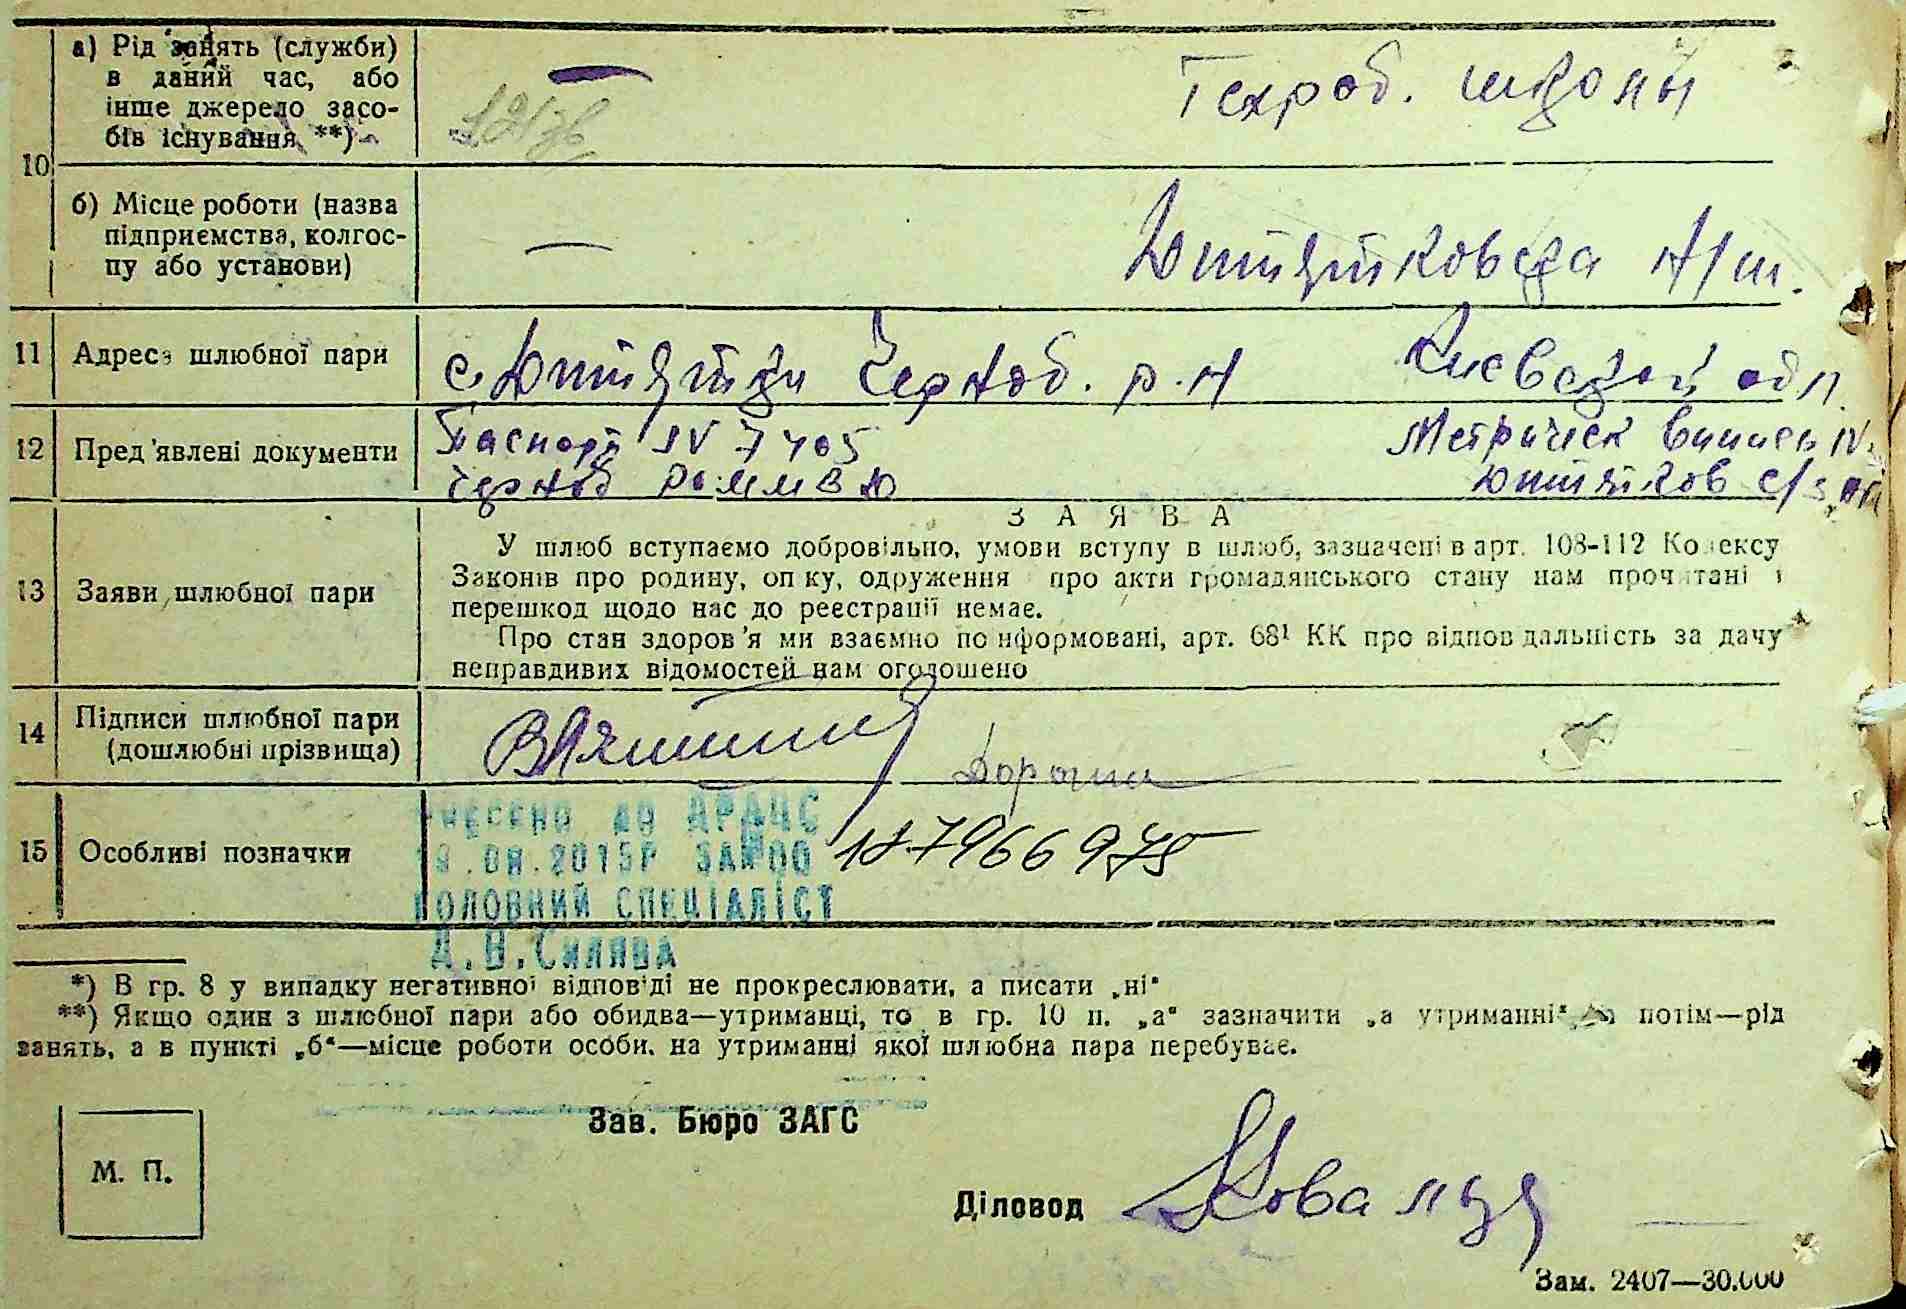 10
а) Рід занять (служби)
в даний час, або
інше джерело засо-
бів існування **)
—
Техроб. школы
б) Місце роботи (назва
підприємства, колгос-
пу або установи)
—
Дитятковска н/ш.
11 Адреса шлюбної пари
с. Дитятки Черноб. р-н Киевской обл.
12 Пред'явлені документи
Паспорт IV 7405 Метрическ выпись IV
Черноб РОММВД Дитятков с/
З А Я В А
У шлюб вступаємо добровільно, умови вступу в шлюб, зазначені в арт. 108-112 Кодексу
13 Заяви шлюбної пари
Законів про родину, оп ку, одруження про акти громадянського стану нам прочитані і
перешкод щодо нас до реєстрації немає.
Про стан здоров'я ми взаємно поінформовані, арт. 68¹ КК про відповідальність за дачу
неправдивих відомостей нам оголошено
14 Підписи шлюбної пари
(дошлюбні прізвища)
15 Особливі позначки
ВНЕСЕНО ДО ДРАЦС
.2015Р ЗА №00 187966975
ГОЛОВНИЙ СПЕЦІАЛІСТ
*) В гр. 8 у випадку негативної відповіді не прокреслювати, а писати „ні“
**) Якщо один з шлюбної пари або обидва—утриманці, то в гр. 10 п. „а“ зазначити „а утриманні“, потім—рід
занять, а в пункті „б“—місце роботи особи, на утриманні якої шлюбна пара перебуває.
Зав. Бюро ЗАГС
М. П.
Діловод
Зам. 2407—30.000